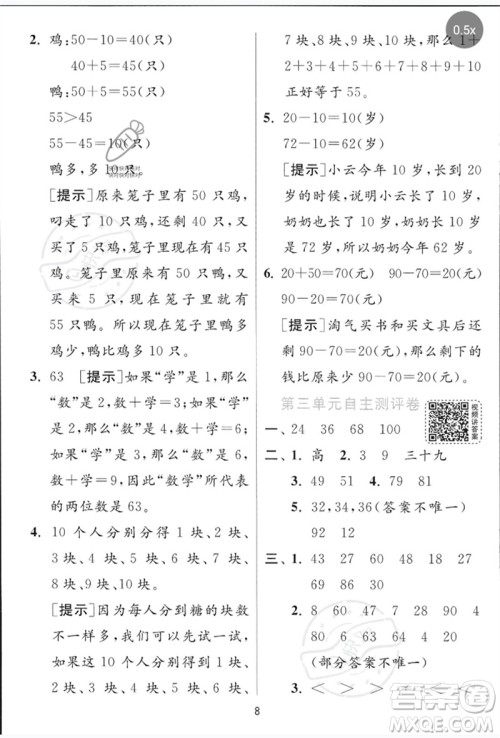 0.5x
2. 鸡:50-10=40(只)
40+5=45(只)
鸭:50+5=55(只)
55>45
55-45=10(只)
鸭多,多10只。
[提示]原来笼子里有50只鸡,
叼走了10只,还剩40只,又
买了5只鸡,笼子里现在有45
只鸡。笼子里原来有50只鸭,
又买来5只,笼子里现在有
55只鸭。所以,现在笼子里鸭多
鸡少,鸭比鸡多10只。
3. 63 [提示]如果“学”是1,那
么“数”是2,如果“学”是2,那
么“数”是4,此时数+学=6;
如果“学”是3,那么“数”是6,
数+学=9;因此“数学”所代表
的两位数是63。
4. 10个人分别分得1块、2块、
3块、4块、5块、6块、7块、8块、
9块、10块。
[提示]因为每人分到糖的块数
不一样多,我们可以先试一试,
如果10个人分别分得1块、2
块、3块、4块、5块、6块、
7块、8块、9块、10块,那么1+
2+3+4+5+6+7+8+9+10
正好等于55。
5. 20-10=10(岁)
72-10=62(岁)
[提示]小云今年10岁,小云20
岁的时候,说明又长了10岁,
奶奶也长了10岁,奶奶长10岁
后是72岁,所以奶奶今年62岁。
6. 20+50=70(元) 90-70=20(元)
90-20=70(元)
[提示]淘气买书和买文具后
还剩90-70=20(元),那么剩下的
钱比原来少90-20=70(元)。
第三单元自主测评卷
视频讲答案
一、24 36 68 100
二、1. 高 2. 39 三十九
3. 49 51 4. 8
5. 32,34,36(答案不唯一)
92 12
三、1. 43 27 60 48 31 18
69 86 30
2. 8 60 47 18 90 4
80 50 67 64 24 20
(部分答案不唯一)
3. < > > < >
8
答案圈